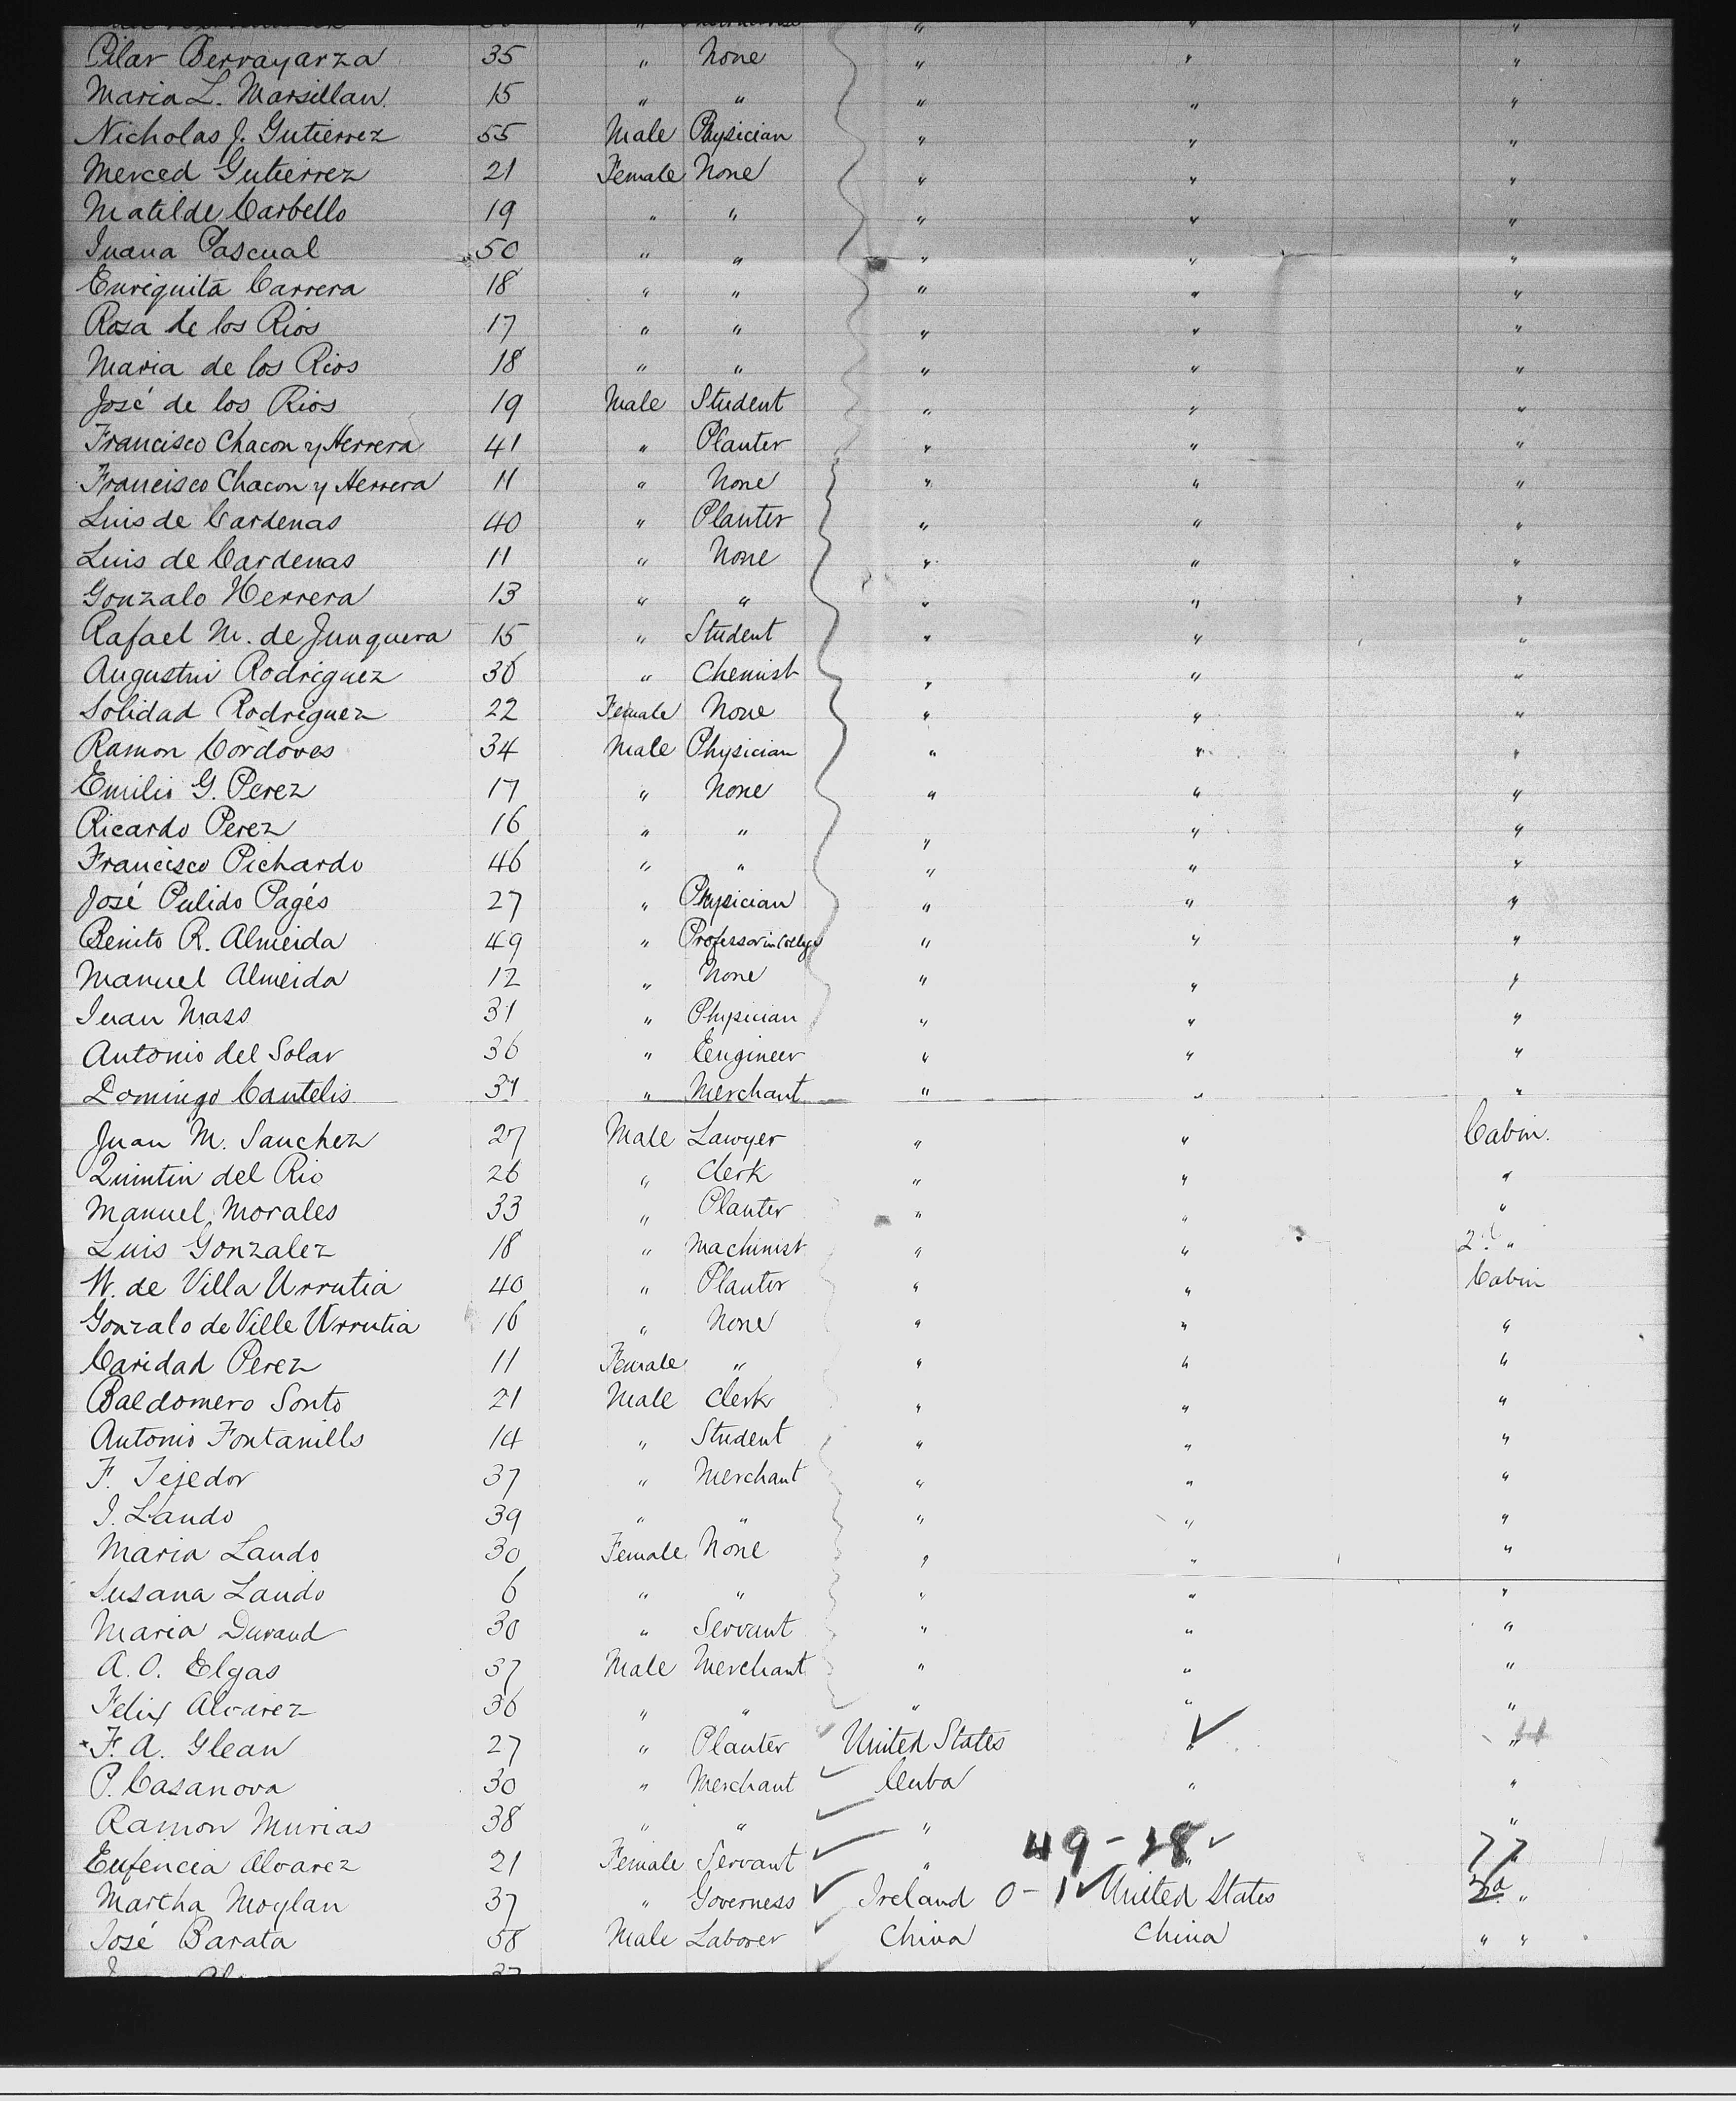 Pilar Berrayarza 35 " None " " "
Maria L. Marsillan 15 " " " " "
Nicholas J. Gutierrez 55 Male Physician " " "
Merced Gutierrez 21 Female None " " "
Matilde Carbello 19 " " " " "
Juana Pascual 50 " " " " "
Enriquita Carrera 18 " " " " "
Rosa de los Rios 17 " " " " "
Maria de los Rios 18 " " " " "
José de los Rios 19 Male Student " " "
Francisco Chacon y Herrera 41 " Planter " " "
Francisco Chacon y Herrera 11 " None " " "
Luis de Cardenas 40 " Planter " " "
Luis de Cardenas 11 " None " " "
Gonzalo Herrera 13 " " " " "
Rafael M. de Junquera 15 " Student " " "
Augustin Rodriguez 36 " Chemist " " "
Solidad Rodriguez 22 Female None " " "
Ramon Cordoves 34 Male Physician " " "
Emilio G. Perez 17 " None " " "
Ricardo Perez 16 " " " " "
Francisco Pichardo 46 " " " " "
José Pulido Pagés 27 " Physician " " "
Benito R. Almeida 49 " Professor in College " " "
Manuel Almeida 12 " None " " "
Juan Mass 31 " Physician " " "
Antonio del Solar 36 " Engineer " " "
Domingo Cantelis 31 " Merchant " " "
Juan M. Sanchez 27 Male Lawyer " " Cabin.
Quintin del Rio 26 " Clerk " " "
Manuel Morales 33 " Planter " " "
Luis Gonzalez 18 " Machinist " " 2d "
W. de Villa Urrutia 40 " Planter " " Cabin
Gonzalo de Ville Urrutia 16 " None " " "
Caridad Perez 11 Female " " " "
Baldomero Sonto 21 Male Clerk " " "
Antonio Fontanills 14 " Student " " "
F. Tejedor 37 " Merchant " " "
J. Lando 39 " " " " "
Maria Lando 30 Female None " " "
Susana Lando 6 " " " " "
Maria Durand 30 " Servant " " "
A. O. Elgas 37 Male Merchant " " "
Felix Alvarez 36 " " " " "
F. A. Glean 27 " Planter United States " "
P. Casanova 30 " Merchant Cuba " "
Ramon Murias 38 " " " "
Eufencia Alvarez 21 Female Servant " 49 - 28 " 77
Martha Moylan 37 " Governess Ireland 0 - 1 United States 2d "
José Barata 58 Male Laborer China China " "